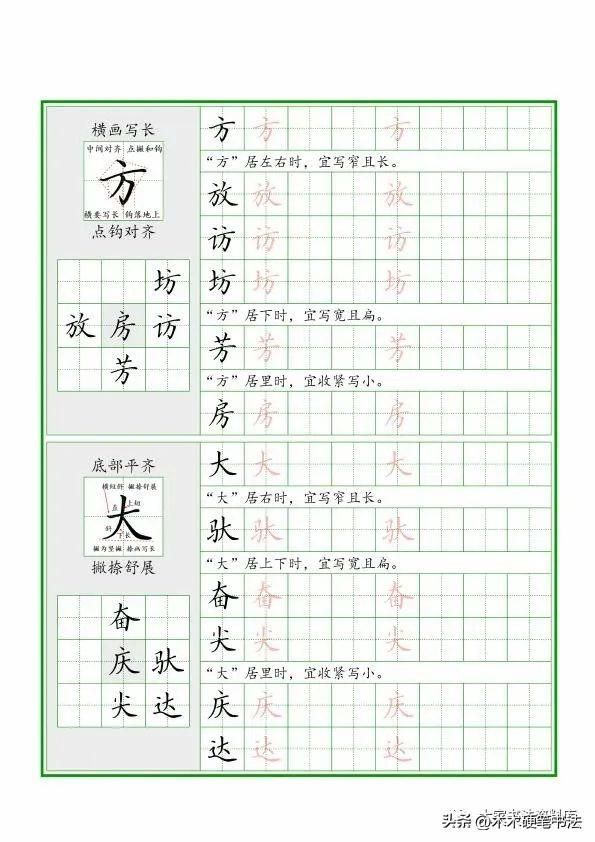 横画写长
中间对齐 点撇和钩
方
横要写长 钩落地上
点钩对齐
坊
放 房 访
芳
方 方 方
“方”居左右时，宜写窄且长。
放 放 放
访 访 访
坊 坊 坊
“方”居下时，宜写宽且扁。
芳 芳 芳
“方”居里时，宜收紧写小。
房 房 房
底部平齐
横短斜 撇捺舒展
直 上切
大
斜 下长
撇为竖撇 捺画写长
撇捺舒展
奋
庆 驮
尖 达
大 大 大
“大”居右时，宜写窄且长。
驮 驮 驮
“大”居上下时，宜写宽且扁。
奋 奋 奋
尖 尖 尖
“大”居里时，宜收紧写小。
庆 庆 庆
达 达 达
头条 @木木硬笔书法